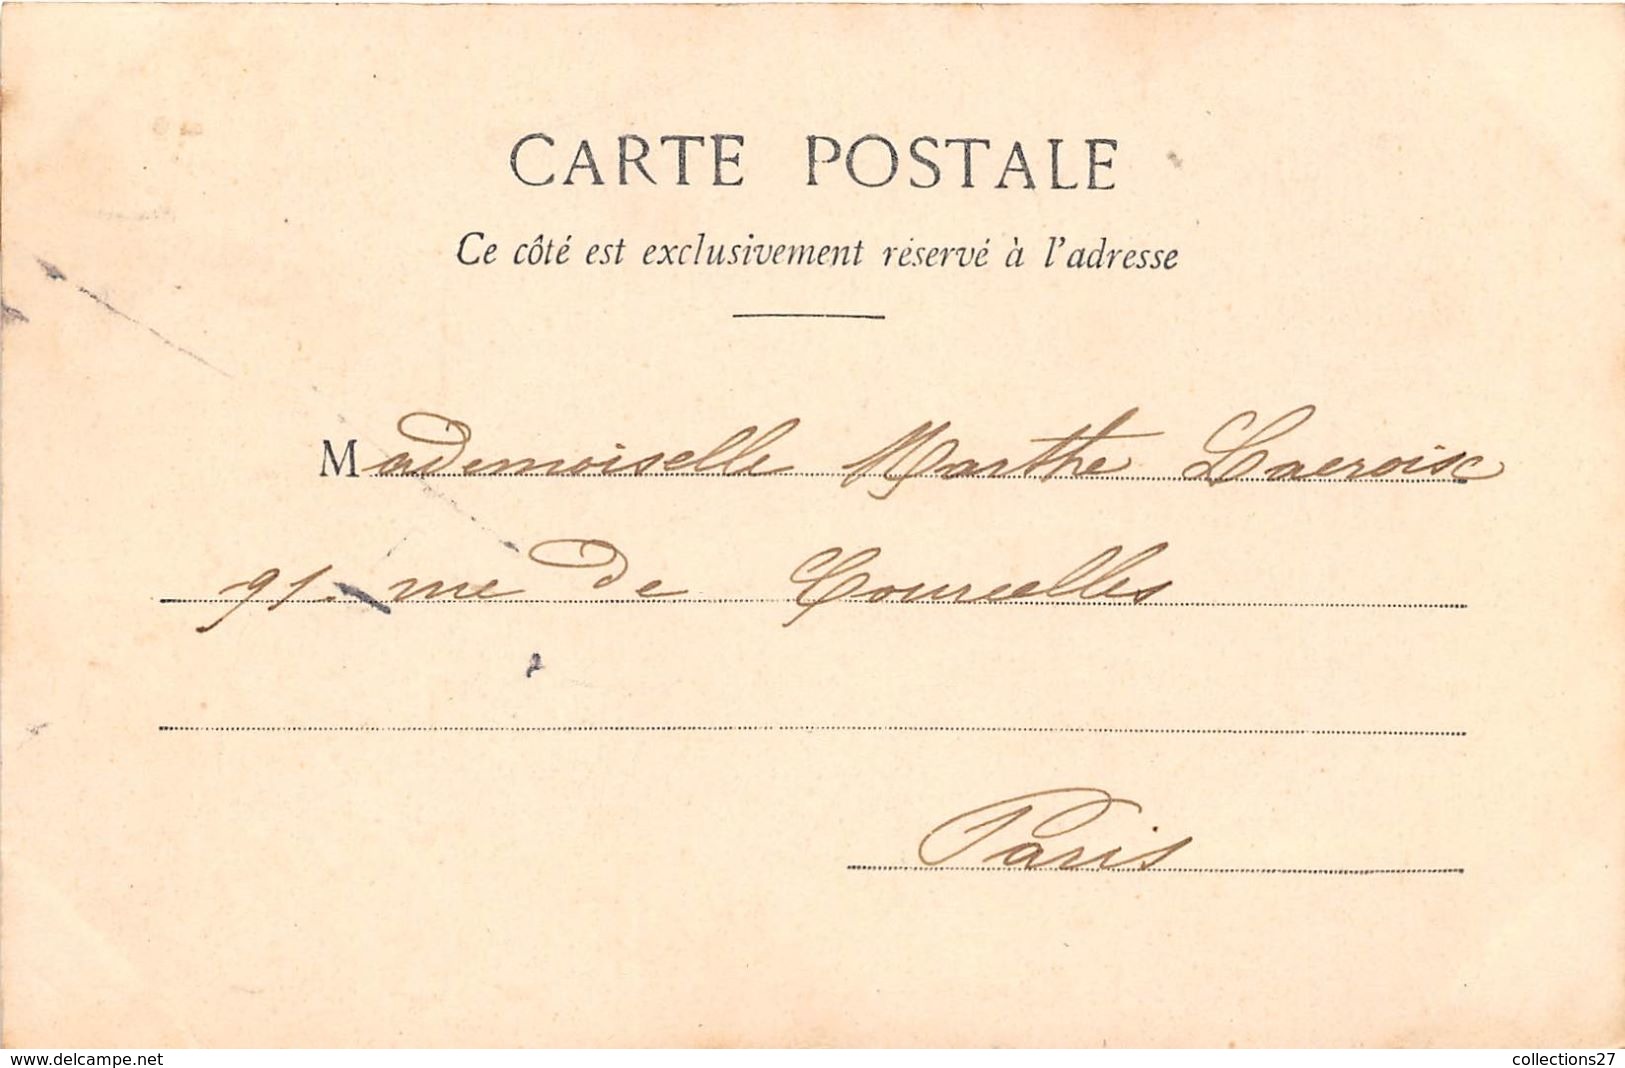 CARTE POSTALE
Ce côté est exclusivement réservé à l'adresse
Mademoiselle Marthe Lacroix
91 rue de Courcelles
Paris
www.delcampe.net
collections27